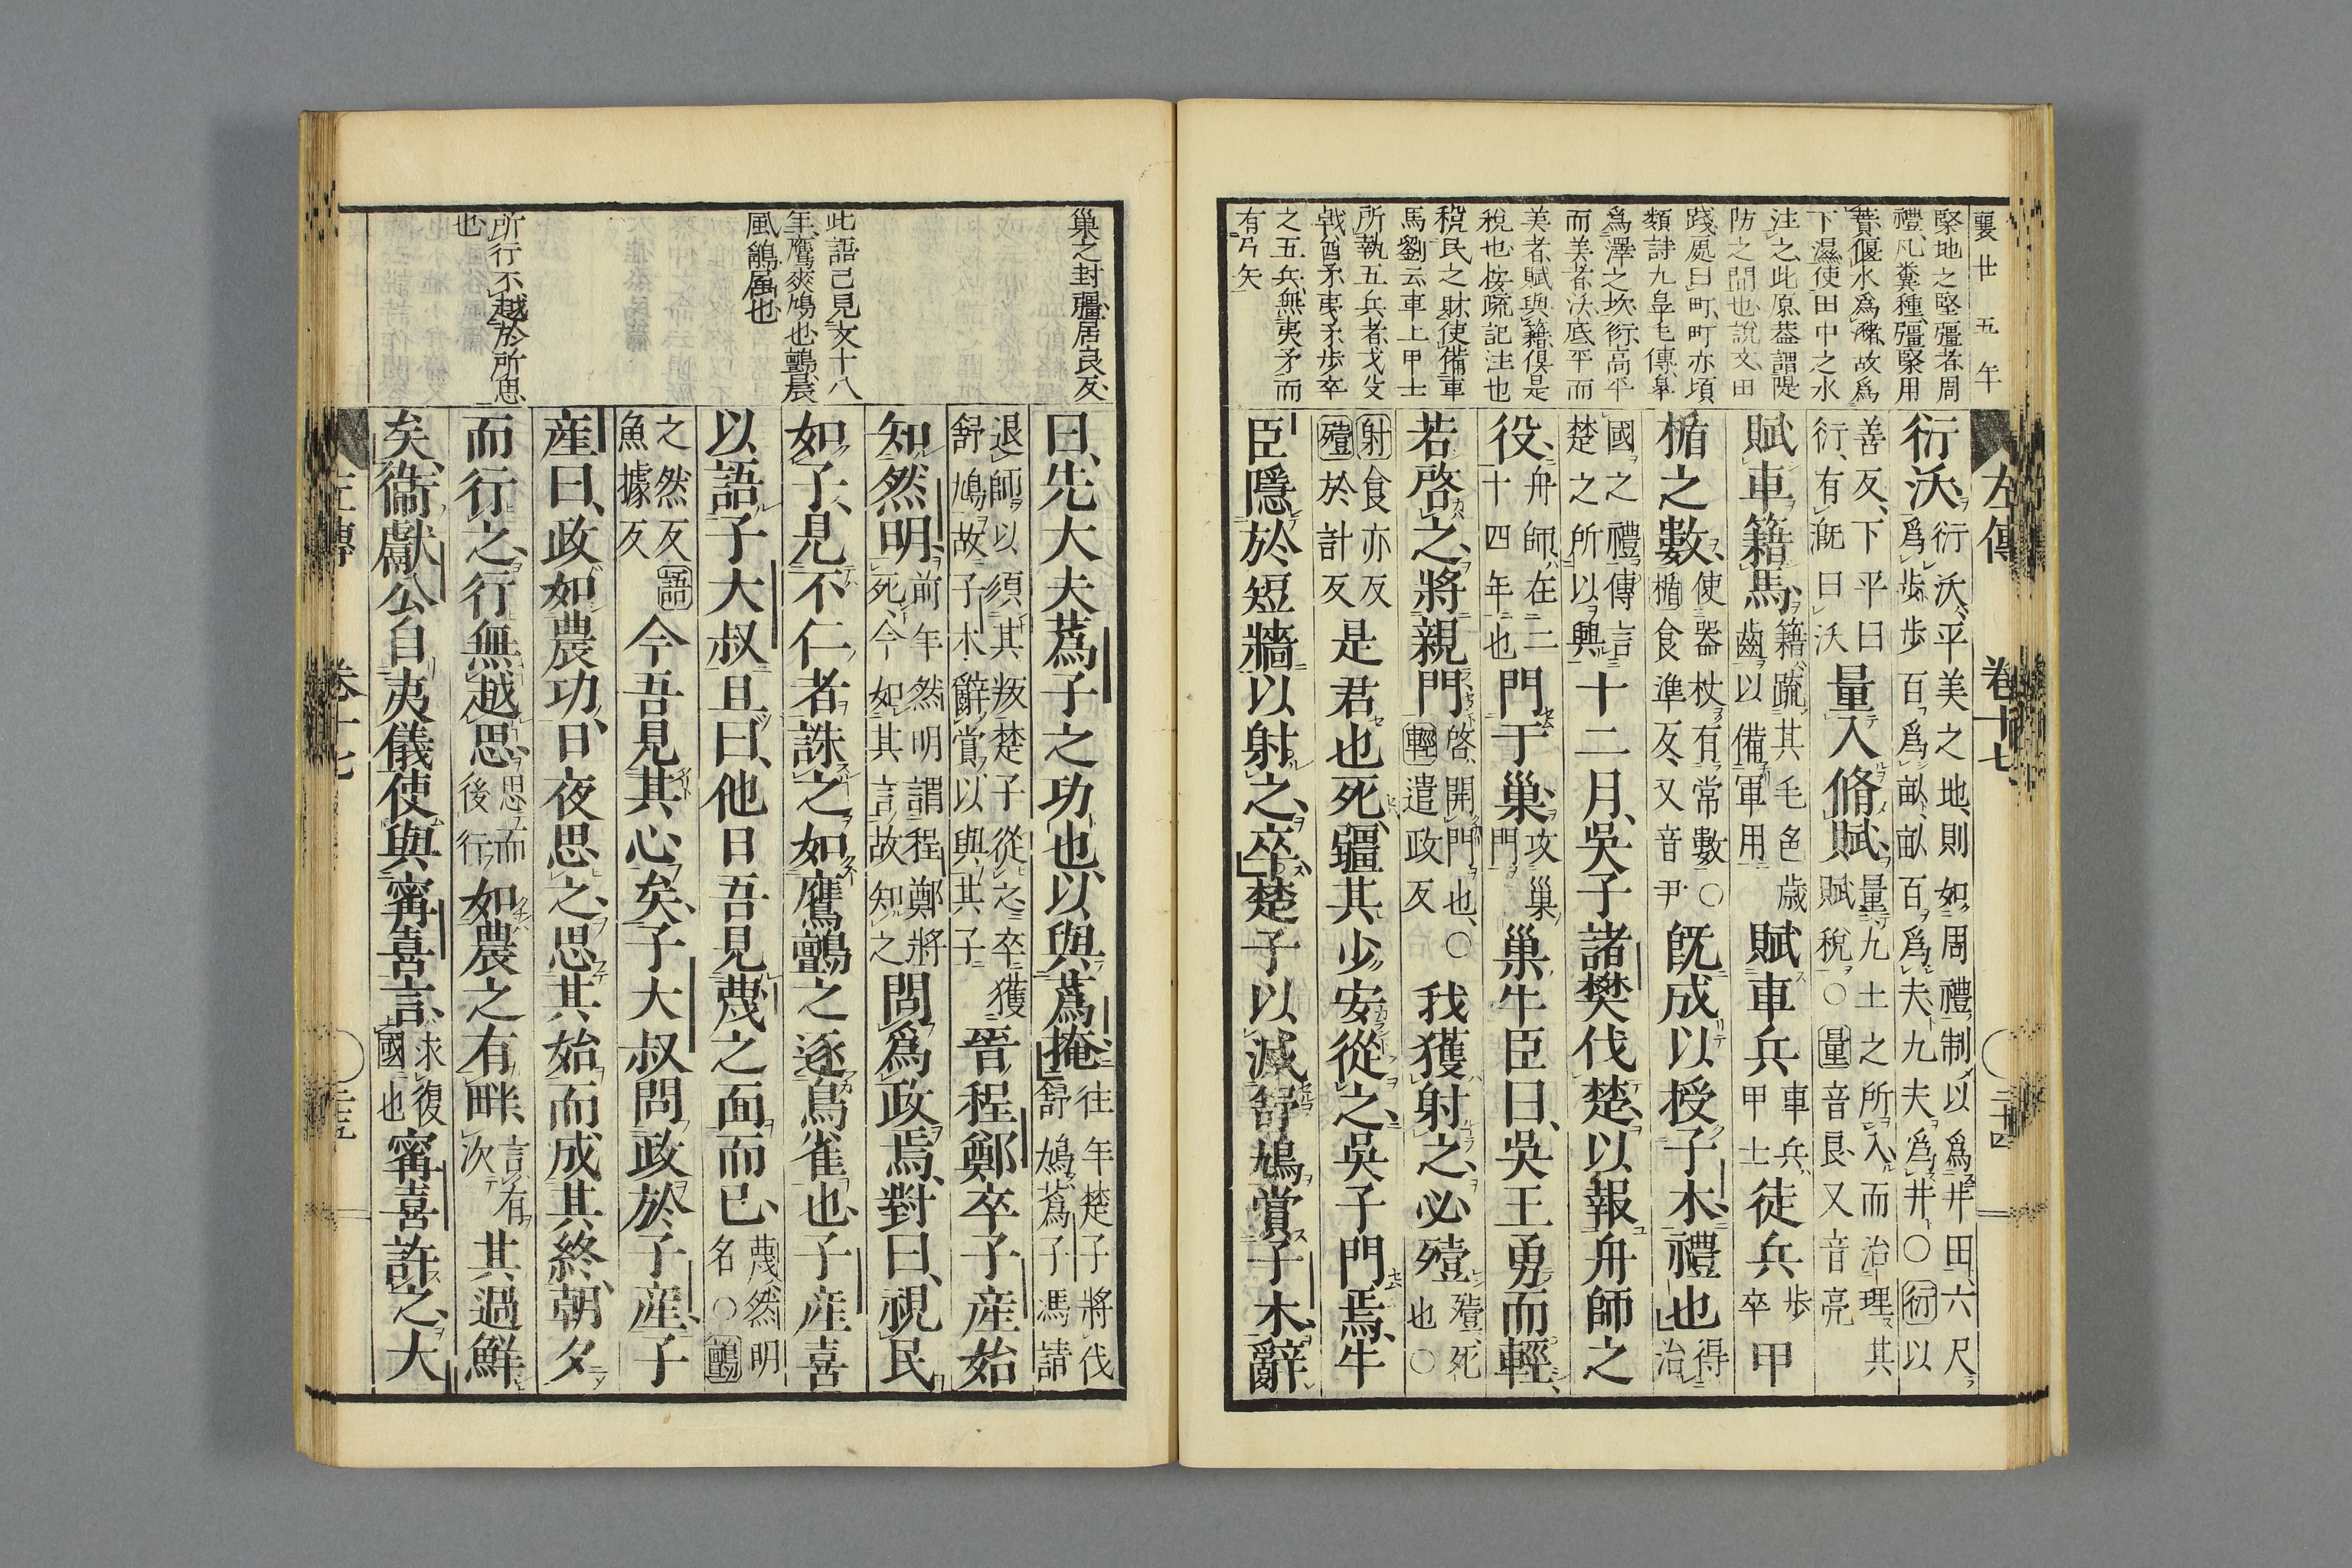 襄廿五年
緊地之堅彊者周
禮凡糞種彊㯺用
蕡偃水爲瀦故爲
下濕使田中之水
注之此原蓋謂隄
防之間也說文田
踐處曰町町亦頃
類詩九皐毛傳皐
爲澤之坎衍高平
而美者沃底平而
美者賦與籍俱是
稅也按疏記注也
稅民之財使備車
馬劉云車上甲士
所執五兵者戈殳
戟酋矛夷矛步卒
之五兵無夷矛而
有弓矢
左傳 卷十七 二十四
衍沃衍沃平美之地則如周禮制以爲井田六尺
爲步步百爲畝畝百爲夫九夫爲井○衍以
善反下平曰
衍有溉曰沃
量入脩賦量九土之所入而治理其
賦稅○量音良又音亮
賦車籍馬籍疏其毛色歲
齒以備軍用
賦車兵車兵
甲士
徒兵步
卒
甲
楯之數使器杖有常數○
楯食準反又音尹
旣成以授子木禮也得
治
國之禮傳言
楚之所以興
十二月吳子諸樊伐楚以報舟師之
役舟師在二
十四年也
門于巢攻巢
門
巢牛臣曰吳王勇而輕
若啓之將親門啓開門也○
輕遣政反
我獲射之必殪殪死
也○
射食亦反
殪於計反
是君也死疆其少安從之吳子門焉牛
臣隱於短牆以射之卒楚子以滅舒鳩賞子木辭
巢之封疆居良反
此語已見文十八
年鷹爽鳩也鸇晨
風鷂屬也
所行不越於所思
也
曰先大夫蔿子之功也以與蔿掩往年楚子將伐
舒鳩蔿子馮請
退師以須其叛楚子從之卒獲
舒鳩故子木辭賞以與其子
晉程鄭卒子產始
知然明前年然明謂程鄭將
死今如其言故知之
問爲政焉對曰視民
如子見不仁者誅之如鷹鸇之逐鳥雀也子產喜
以語子大叔且曰他日吾見蔑之面而已蔑然明
名○鸇
之然反語
魚據反
今吾見其心矣子大叔問政於子產子
產曰政如農功日夜思之思其始而成其終朝夕
而行之行無越思思而
後行
如農之有畔言有
次
其過鮮
矣衞獻公自夷儀使與甯喜言求復
國也
甯喜許之大
左傳 卷十七 二十五